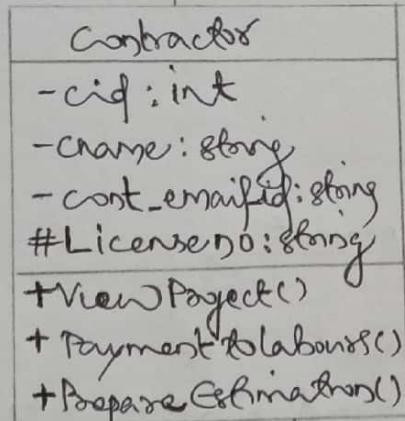 Contractor
-cid : int
-cname : string
-cont_emailid : string
#Licenseno : string
+ViewProject()
+PaymentTolabours()
+PrepareEstimation()